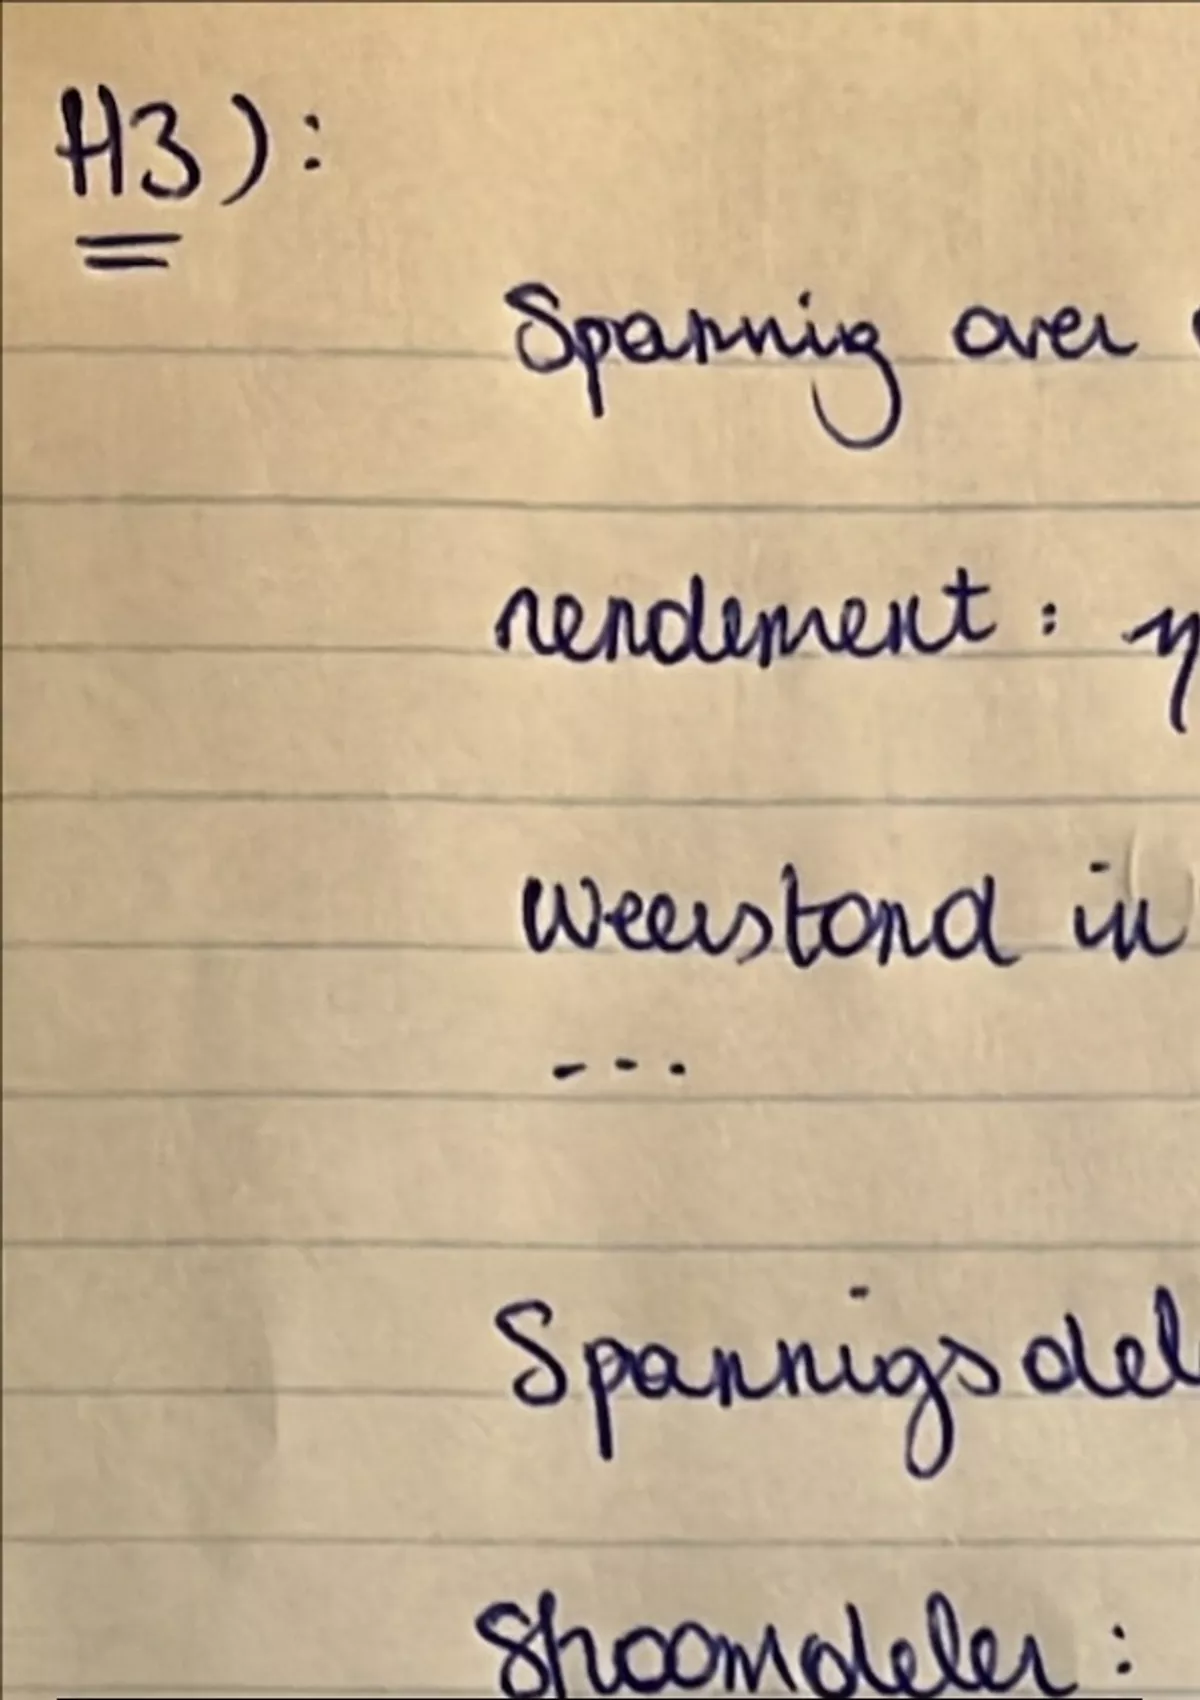 H3):
Spannig over
rendement: η
Weerstand in
...
Spannigsdel
Stroomdeler: